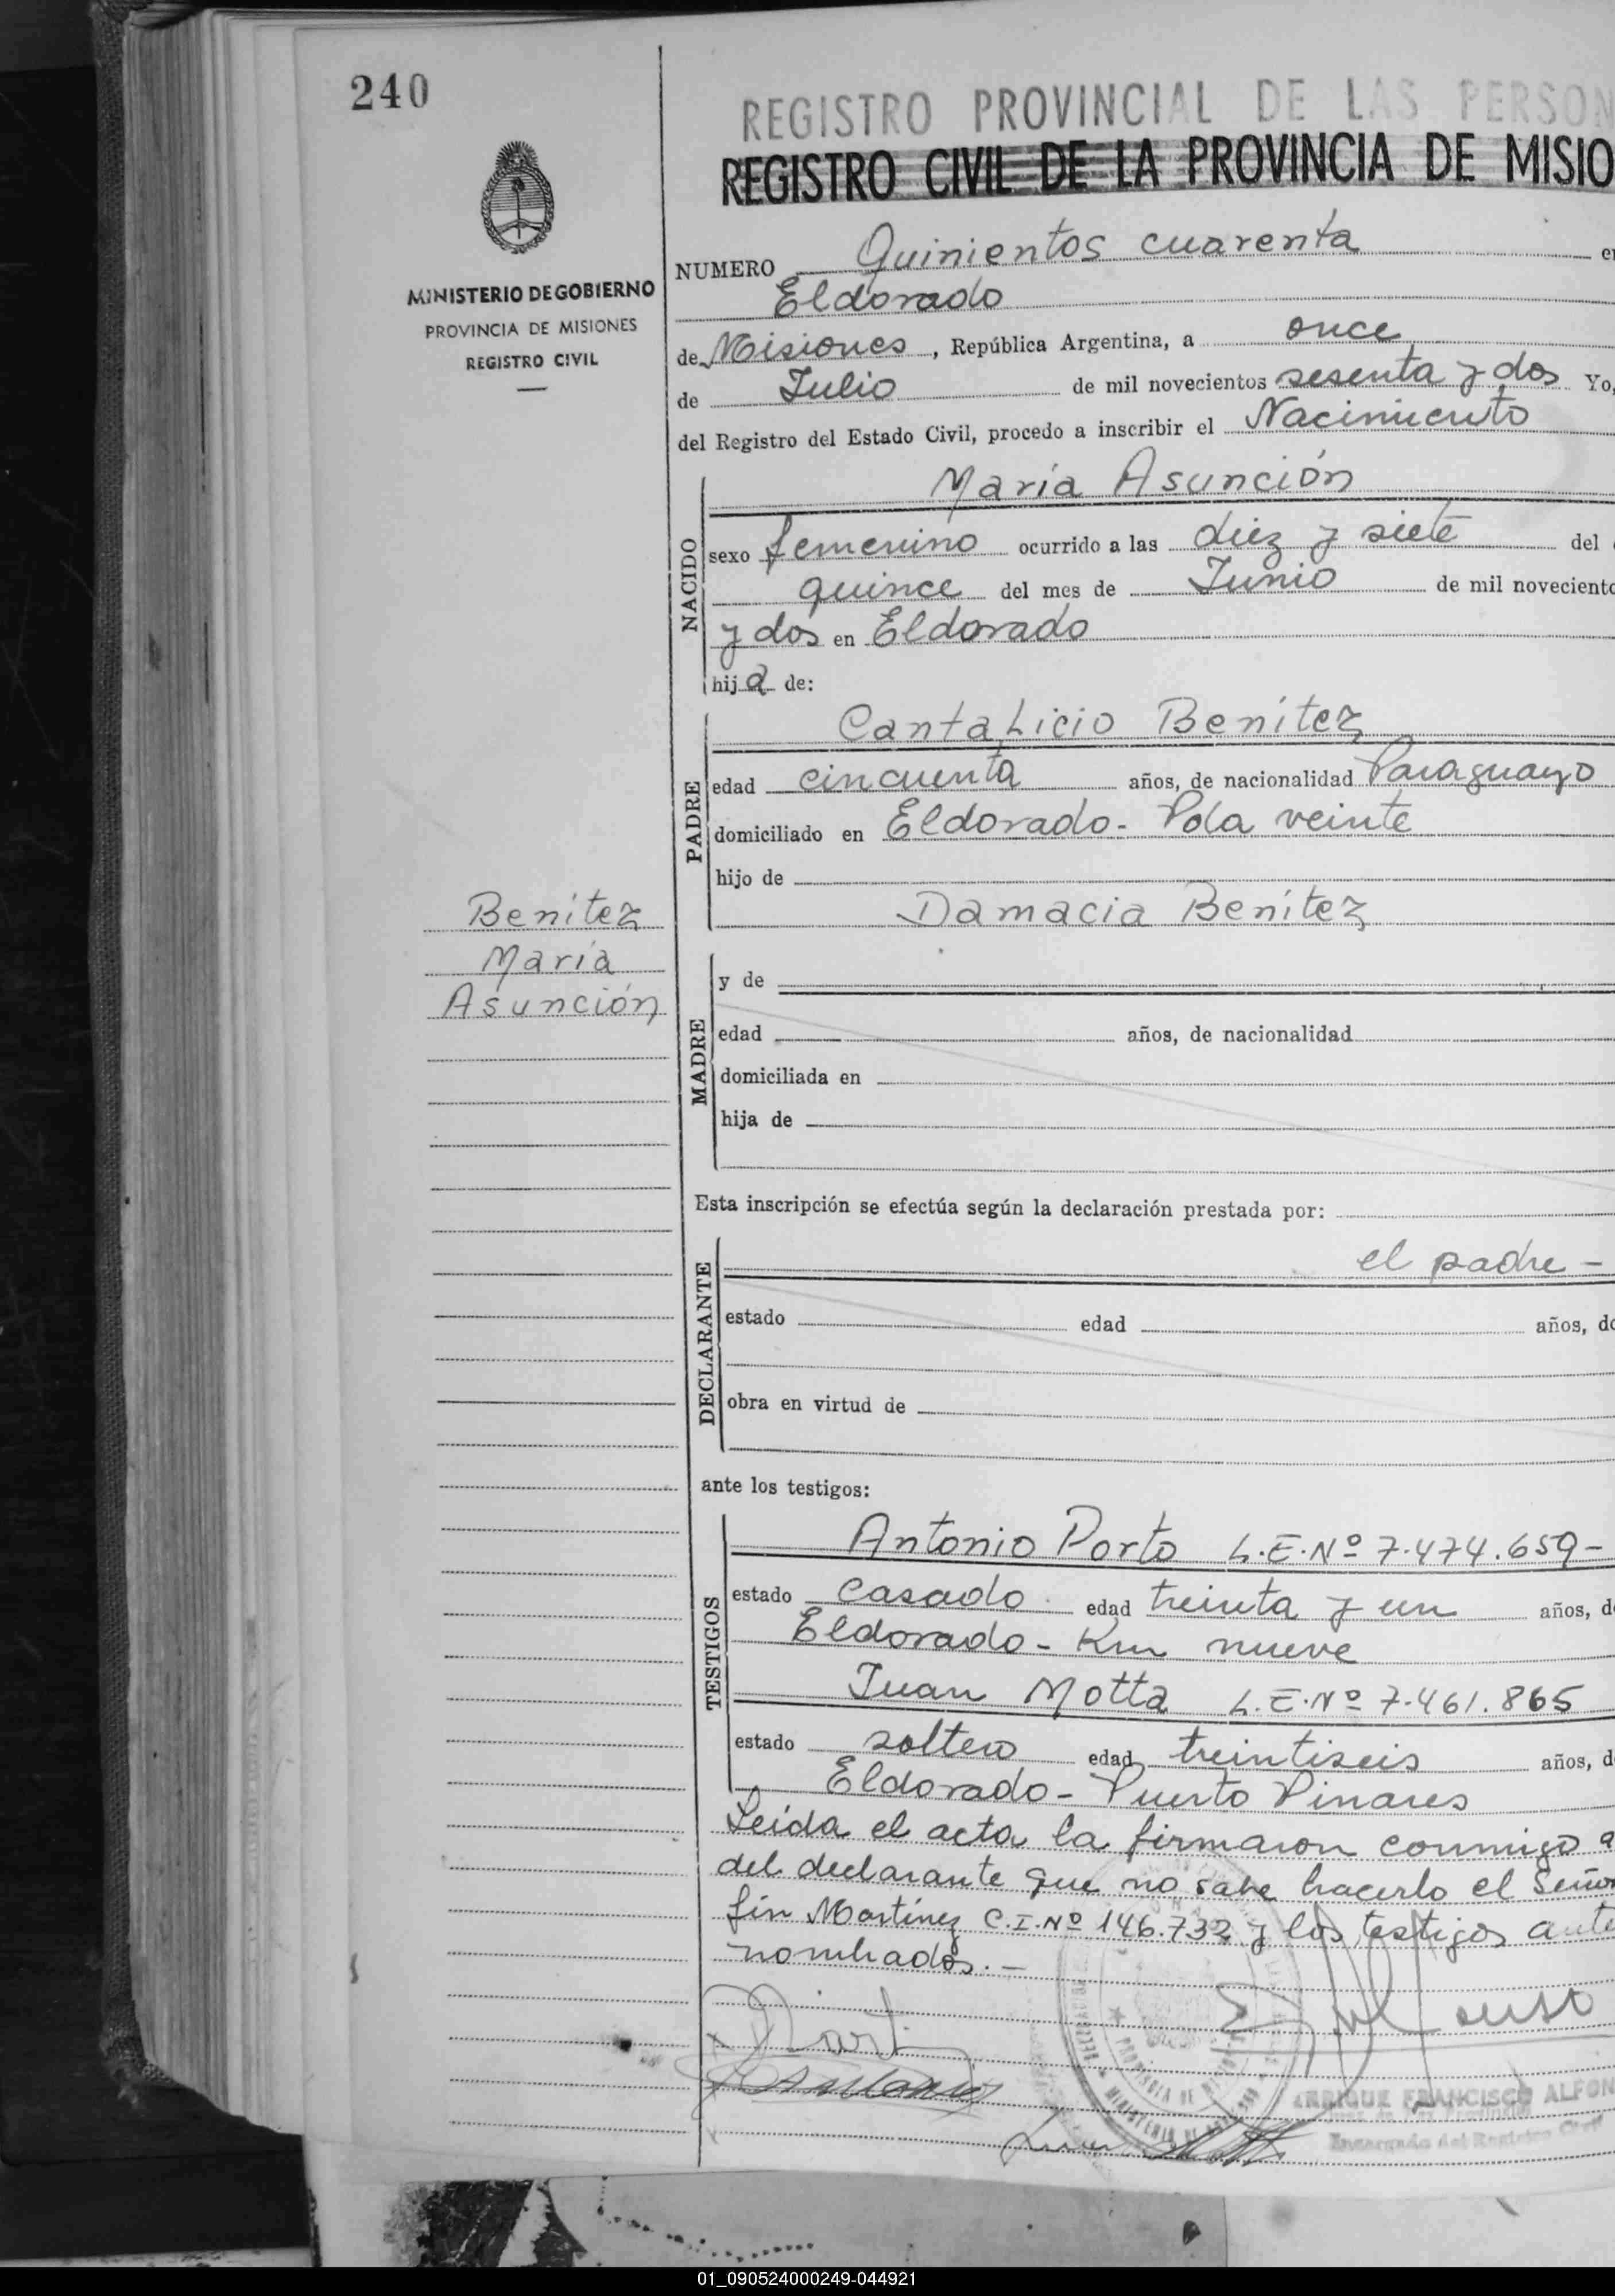 240
REGISTRO PROVINCIAL DE LAS PERSON
REGISTRO CIVIL DE LA PROVINCIA DE MISIO
MINISTERIO DE GOBIERNO
PROVINCIA DE MISIONES
REGISTRO CIVIL
NUMERO Quinientos cuarenta e
Eldorado
de Misiones, República Argentina, a once
de Julio de mil novecientos sesenta y dos Yo,
del Registro del Estado Civil, procedo a inscribir el Nacimiento
NACIDO
María Asunción
sexo femenino ocurrido a las diez y siete del
quince del mes de Junio de mil noveciento
y dos en Eldorado
hija de:
PADRE
Cantalicio Benítez
edad cincuenta años, de nacionalidad Paraguayo
domiciliado en Eldorado - Pda veinte
hijo de
Damacia Benítez
Benítez
María
Asunción
MADRE
y de
edad años, de nacionalidad
domiciliada en
hija de
Esta inscripción se efectúa según la declaración prestada por:
DECLARANTE
el padre -
estado edad años, do
obra en virtud de
ante los testigos:
TESTIGOS
Antonio Porto L.E.Nº 7.474.659-
estado casado edad treinta y un años, d
Eldorado - Km nueve
Juan Motta L.E.Nº 7.461.865
estado soltero edad treintiseis años, d
Eldorado - Puerto Pinares
Leida el acta la firmaron conmigo a
del declarante que no sabe hacerlo el Señor
fin Martínez C.I.Nº 146.732 y los testigos ante
nombrados. -
ENRIQUE FRANCISCO ALFON
Encargado del Registro Civil
01_090524000249-044921